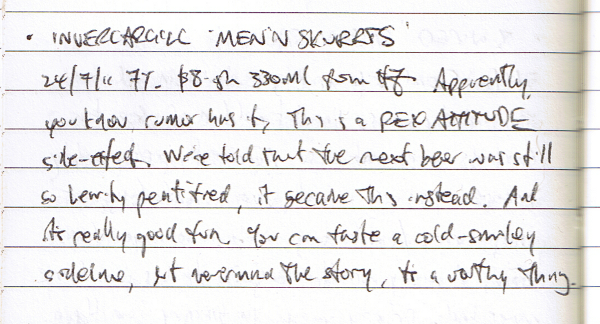 · INVERCARGILL 'MEN'N SKURRTS'
24/7/11 7%. $8-ish 330ml from HZ Apparently,
you know, rumor has it, This is a REX ATTITUDE
side-effect. We're told that the next beer was still
so heavily peatified, it became this instead. And
it's really good fun. You can taste a cold-smokey
sideline, but nevermind the story, it's a worthy thing.